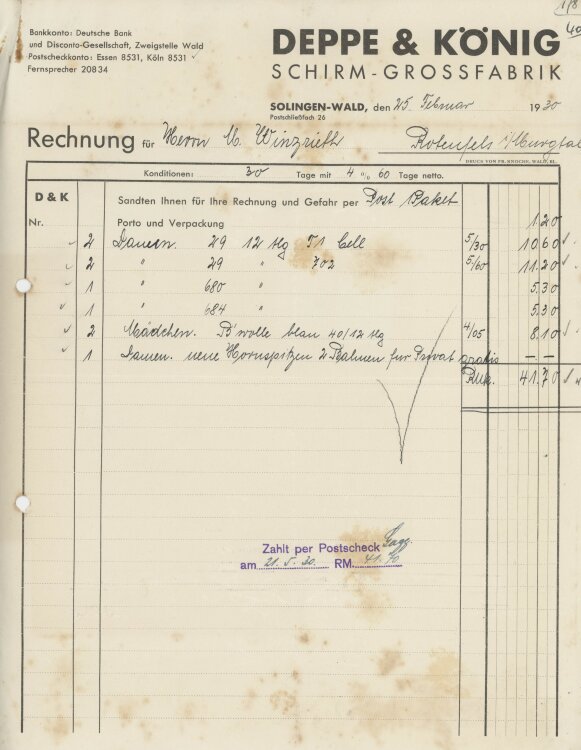 Bankkonto: Deutsche Bank
und Disconto-Gesellschaft, Zweigstelle Wald
Postscheckkonto: Essen 8531, Köln 8531
Fernsprecher 20834
DEPPE & KÖNIG
SCHIRM-GROSSFABRIK
SOLINGEN-WALD, den 25. Februar 1930
Postschließfach 26
Rechnung für Herrn
Rotenfels i/Murgtal
DRUCK VON FR. KNOCHE, WALD, RL.
Konditionen: 30 Tage mit 4 % 60 Tage netto.
D & K
Nr.
Sandten Ihnen für Ihre Rechnung und Gefahr per Post Paket
Porto und Verpackung 1.20
2 Damen 29 12 tlg 5/30 10.60
2 " 29 " 702 5/60 11.20
1 " 680 " 5.30
1 " 684 " 5.30
2 Mädchen. B'wolle blau 40/12 tlg 4/05 8.10
1 Damen. neue Hornspitzen 2 Rahmen für Privat gratis — —
RMk. 41.70
Zahlt per Postscheck
am 21.5.30. RM. 41.70